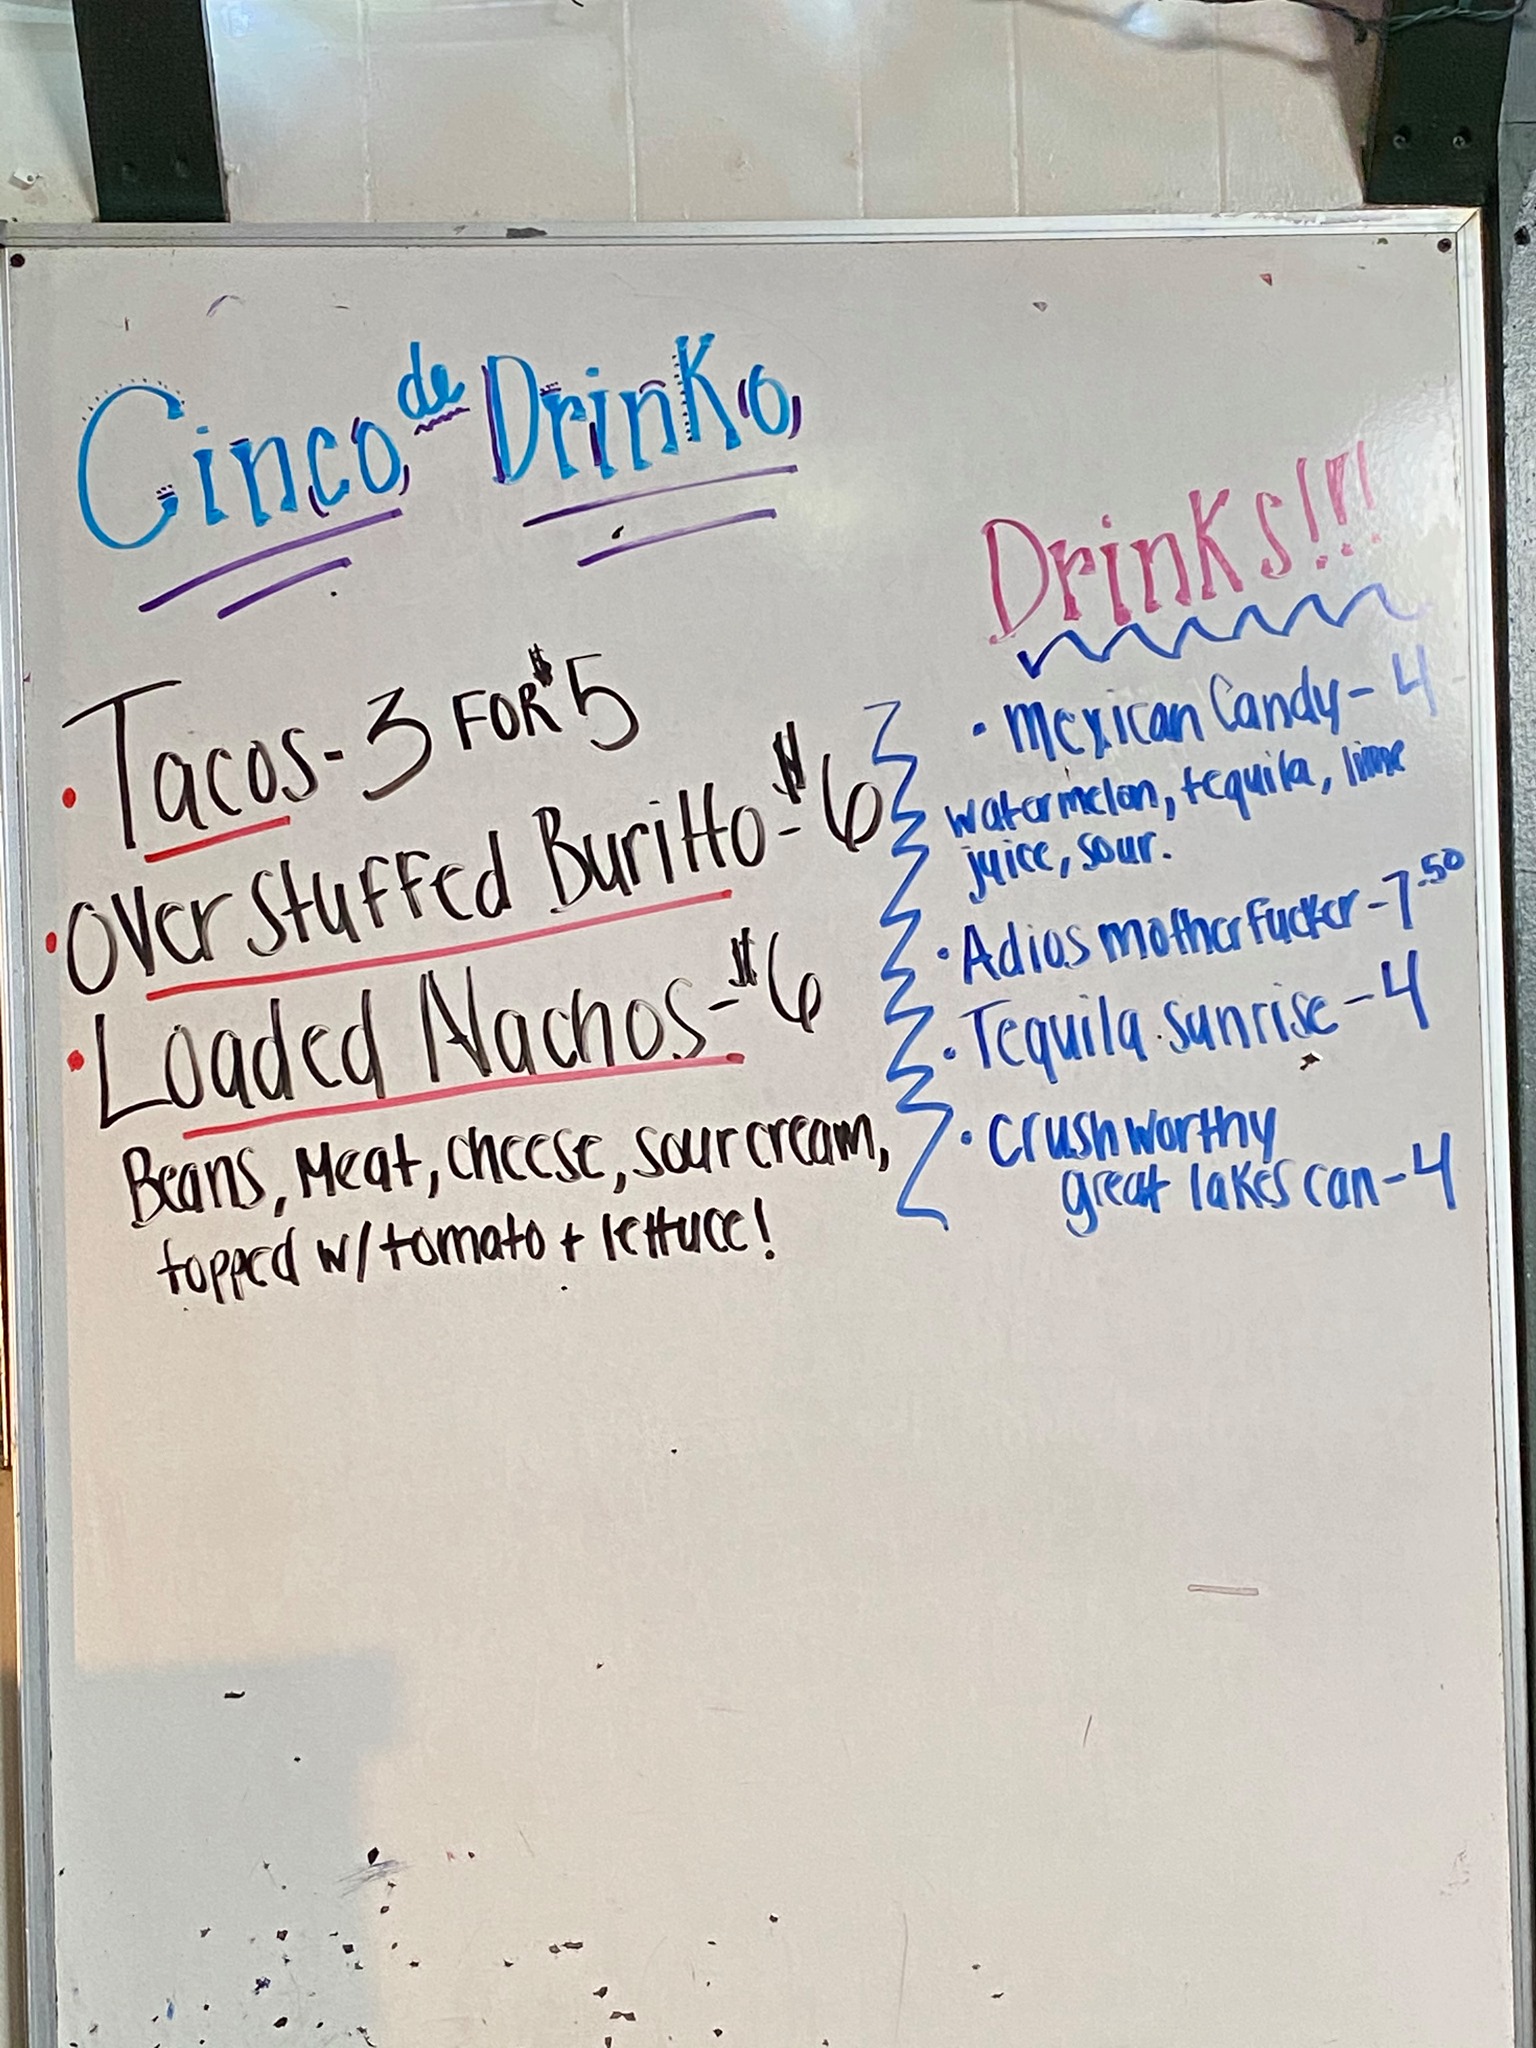 Cinco de Drinko
Tacos - 3 FOR $5
Over stuffed Buritto - $6
Loaded Nachos - $6
Beans, Meat, cheese, sour cream,
topped w/ tomato + lettuce!
Drinks!!!
Mexican Candy - 4
watermelon, tequila, lime
juice, sour.
Adios motherfucker - 7.50
Tequila sunrise - 4
Crushworthy
great lakes can - 4